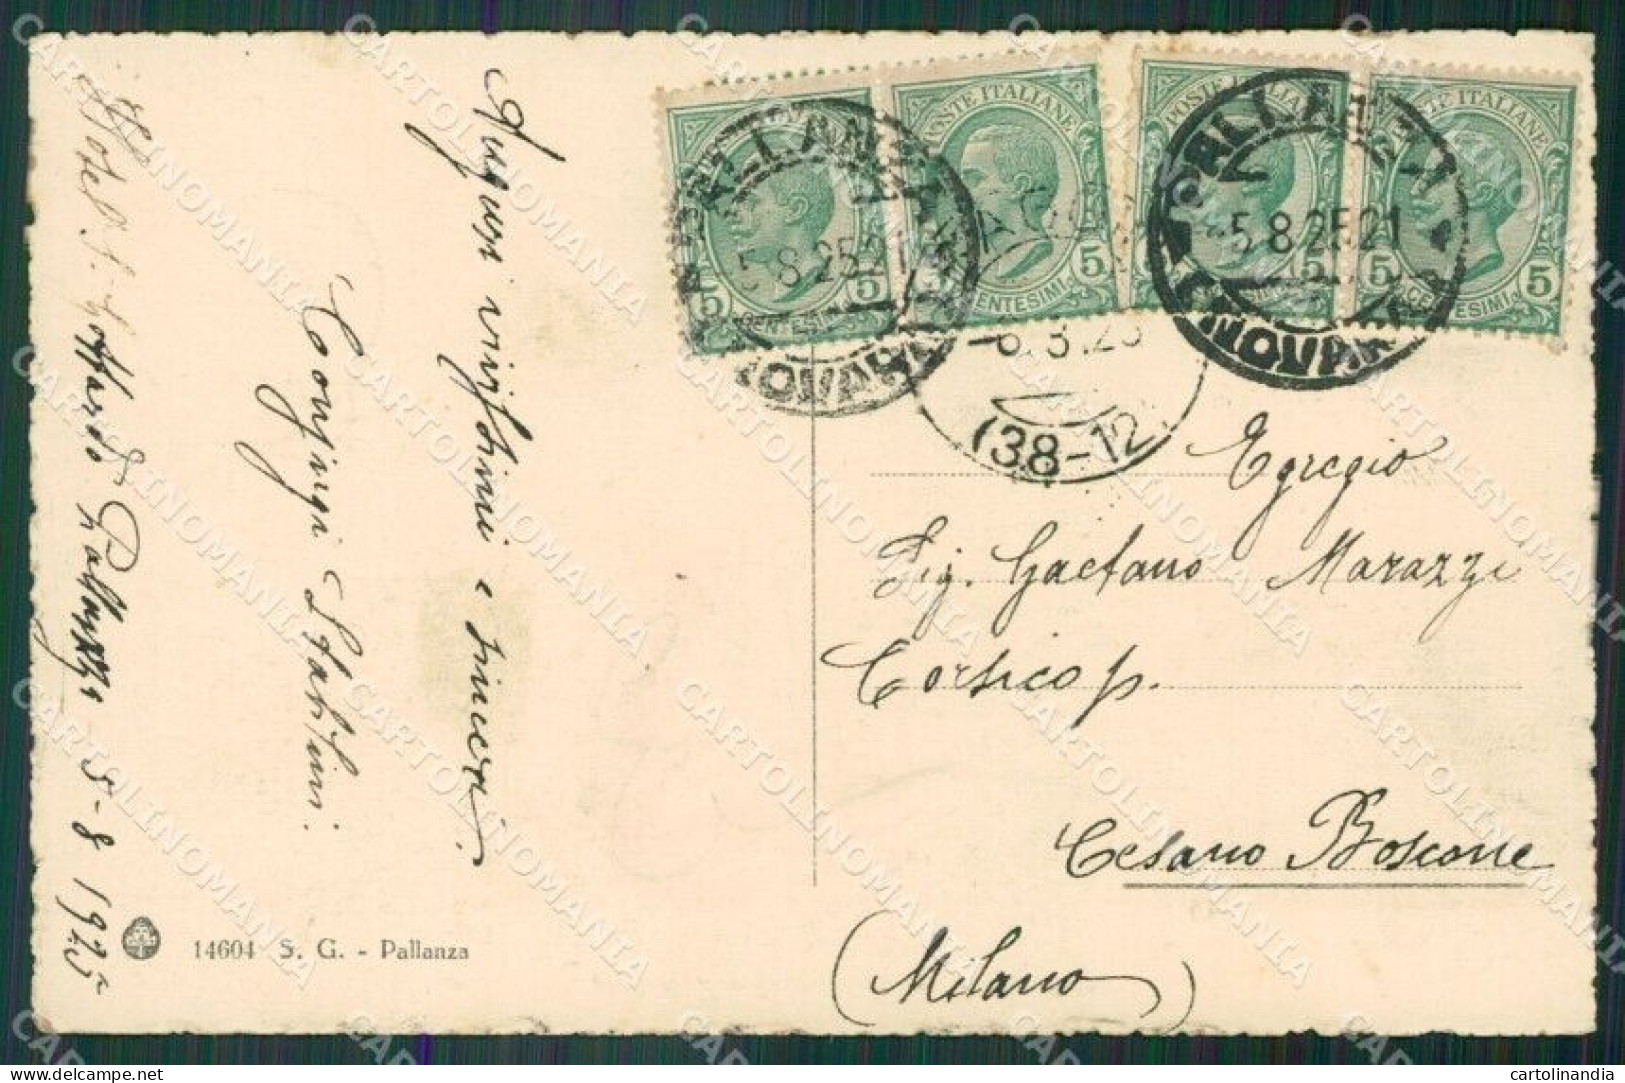 Auguri vivissimi e sinceri.
Coniugi
5-8 1925
14604 S. G. - Pallanza
POSTE ITALIANE
5 5
CENTESIMI
POSTE ITALIANE
5 5
CENTESIMI
POSTE ITALIANE
5 5
CENTESIMI
POSTE ITALIANE
5 5
CENTESIMI
PALLANZA
5.8.25 21
NOVARA
PALLANZA
5.8.25 21
NOVARA
(38-12)
Egregio
Sig. Gaetano Marazzi
Corsico p.
Cesano Boscone
(Milano)
CARTOLINANDIA
cartolinandia